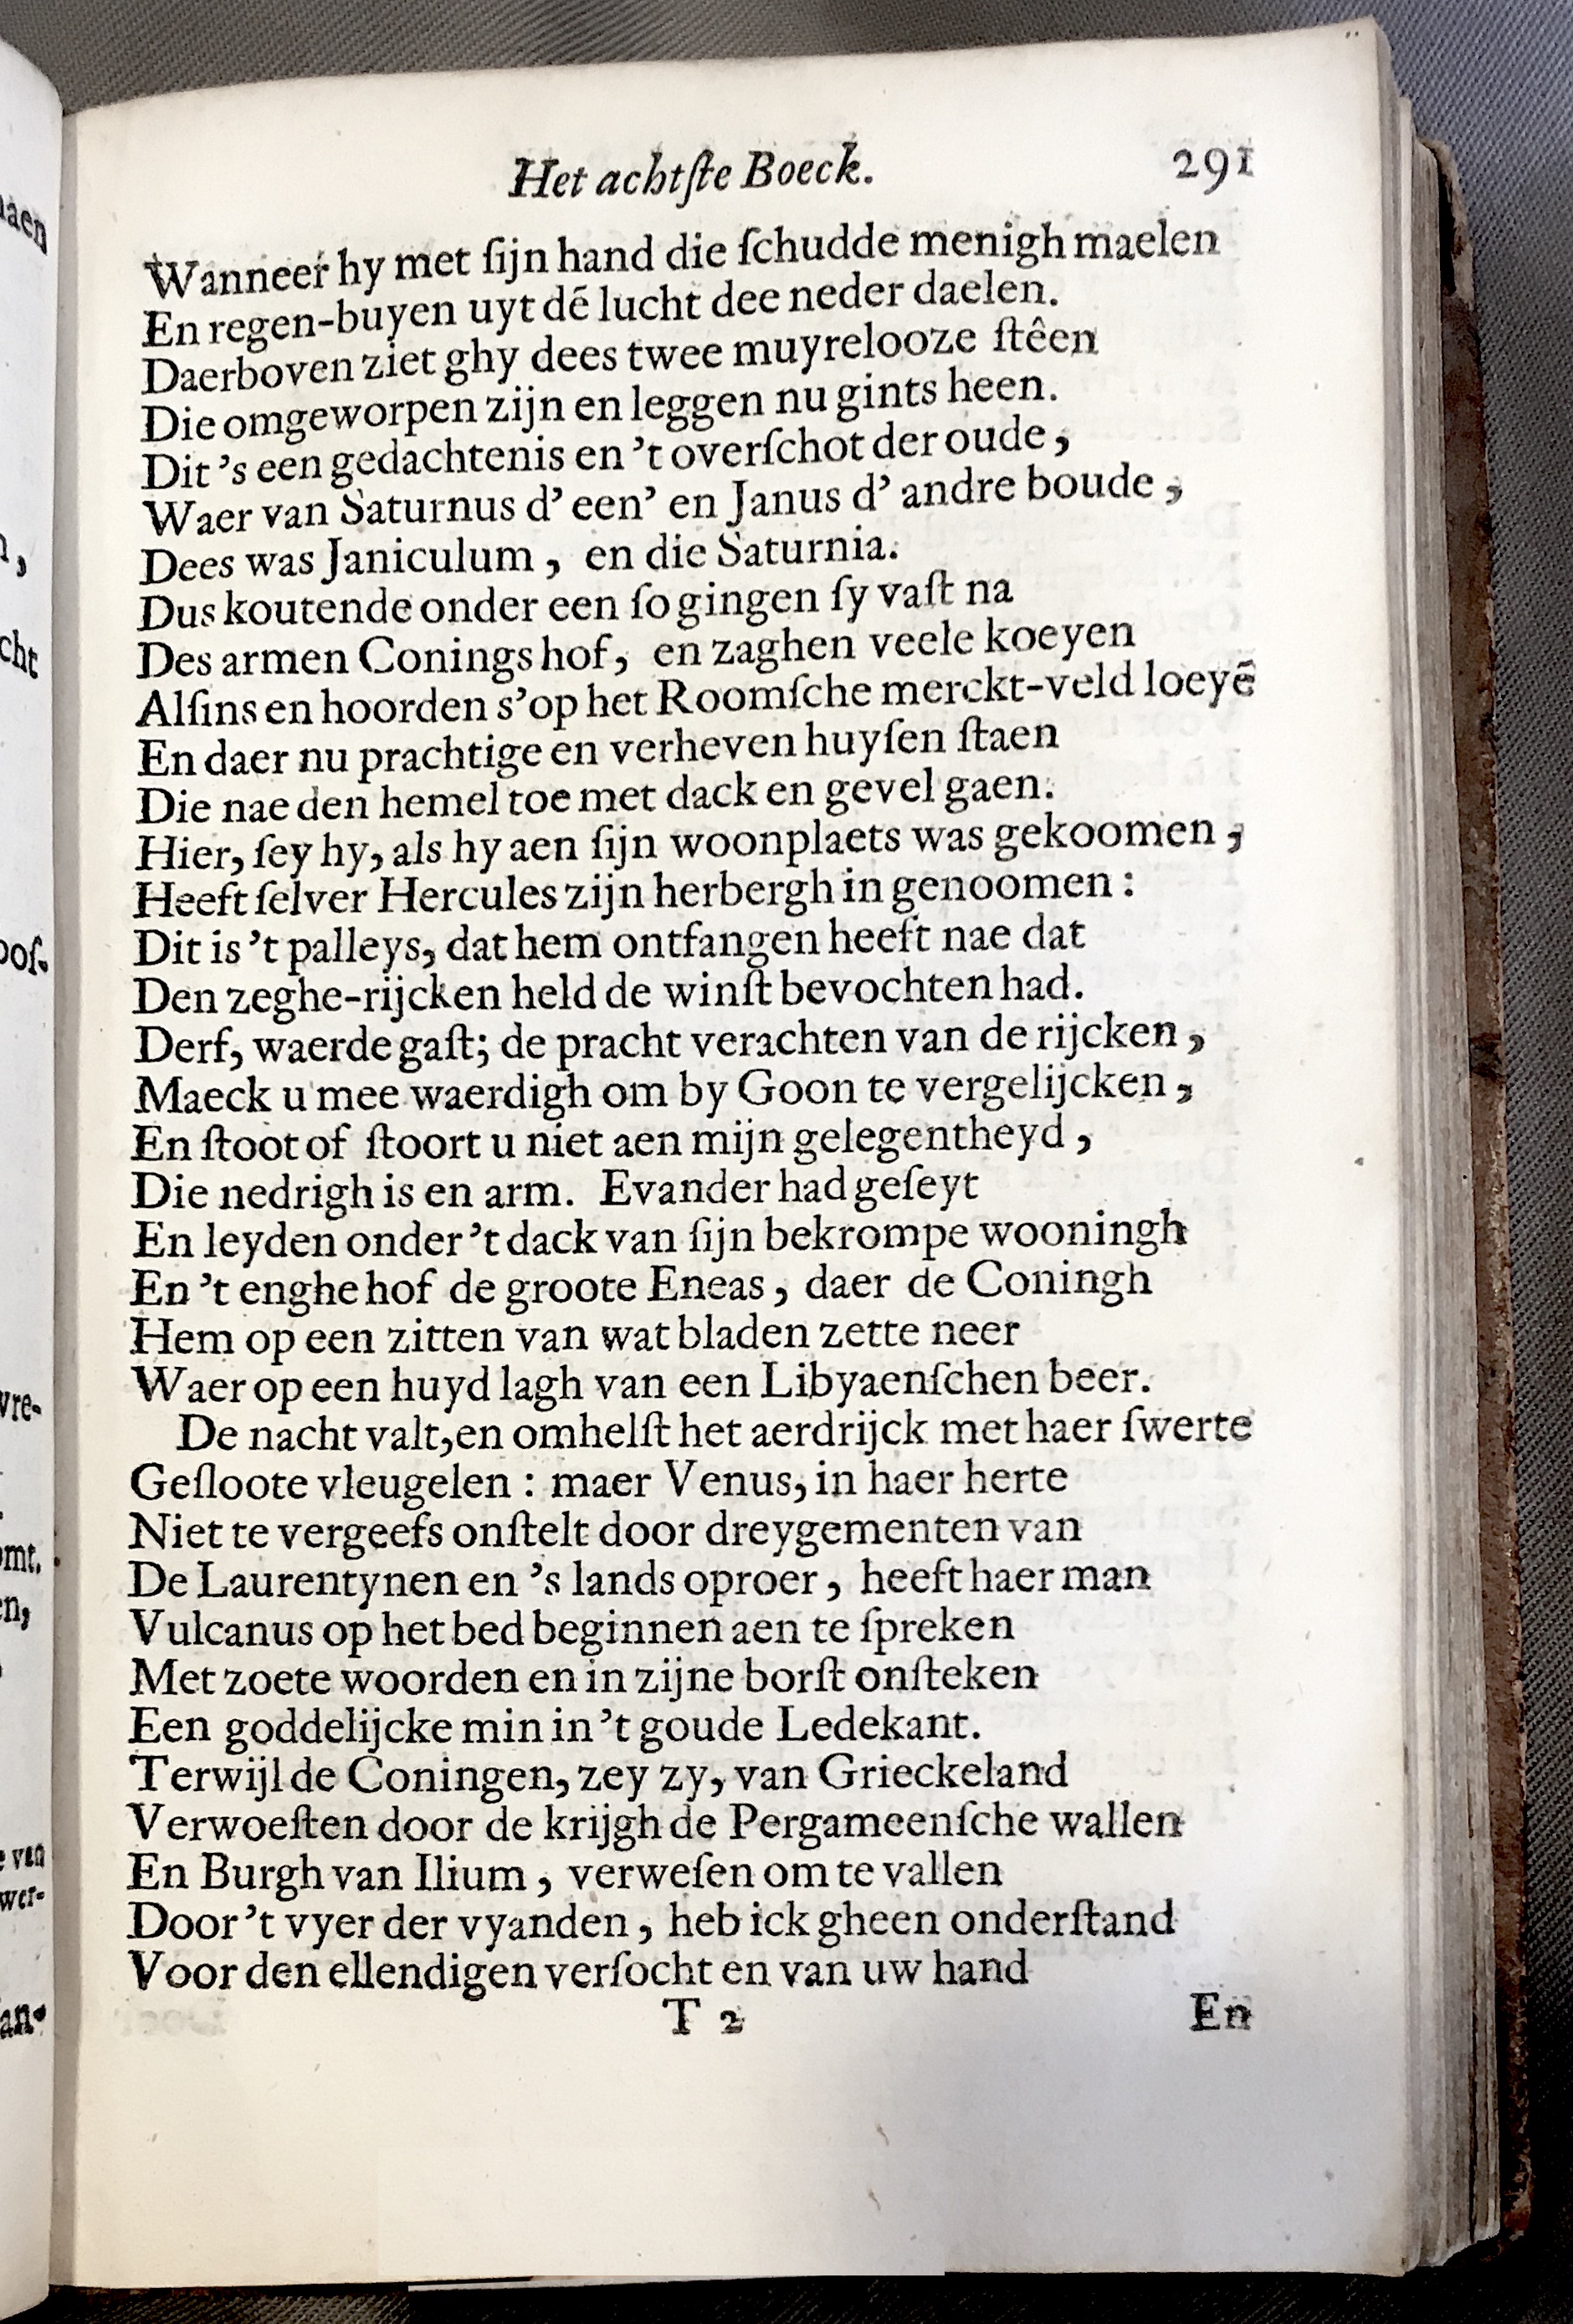 Het achtſte Boeck. 291
Wanneer hy met ſijn hand die ſchudde menigh maelen
En regen-buyen uyt dē lucht dee neder daelen.
Daerboven ziet ghy dees twee muyrelooze ſtêen
Die omgeworpen zijn en leggen nu gints heen.
Dit 's een gedachtenis en 't overſchot der oude,
Waer van Saturnus d' een' en Janus d' andre boude,
Dees was Janiculum, en die Saturnia.
Dus koutende onder een ſo gingen ſy vaſt na
Des armen Conings hof, en zaghen veele koeyen
Alſins en hoorden s'op het Roomſche merckt-veld loeyē
En daer nu prachtige en verheven huyſen ſtaen
Die nae den hemel toe met dack en gevel gaen.
Hier, ſey hy, als hy aen ſijn woonplaets was gekoomen,
Heeft ſelver Hercules zijn herbergh in genoomen:
Dit is 't palleys, dat hem ontfangen heeft nae dat
Den zeghe-rijcken held de winſt bevochten had.
Derf, waerde gaſt; de pracht verachten van de rijcken,
Maeck u mee waerdigh om by Goon te vergelijcken,
En ſtoot of ſtoort u niet aen mijn gelegentheyd,
Die nedrigh is en arm. Evander had geſeyt
En leyden onder 't dack van ſijn bekrompe wooningh
En 't enghe hof de groote Eneas, daer de Coningh
Hem op een zitten van wat bladen zette neer
Waer op een huyd lagh van een Libyaenſchen beer.
De nacht valt, en omhelſt het aerdrijck met haer ſwerte
Geſloote vleugelen: maer Venus, in haer herte
Niet te vergeefs onſtelt door dreygementen van
De Laurentynen en 's lands oproer, heeft haer man
Vulcanus op het bed beginnen aen te ſpreken
Met zoete woorden en in zijne borſt onſteken
Een goddelijcke min in 't goude Ledekant.
Terwijl de Coningen, zey zy, van Grieckeland
Verwoeſten door de krijgh de Pergameenſche wallen
En Burgh van Ilium, verweſen om te vallen
Door 't vyer der vyanden, heb ick gheen onderſtand
Voor den ellendigen verſocht en van uw hand
T 2 En